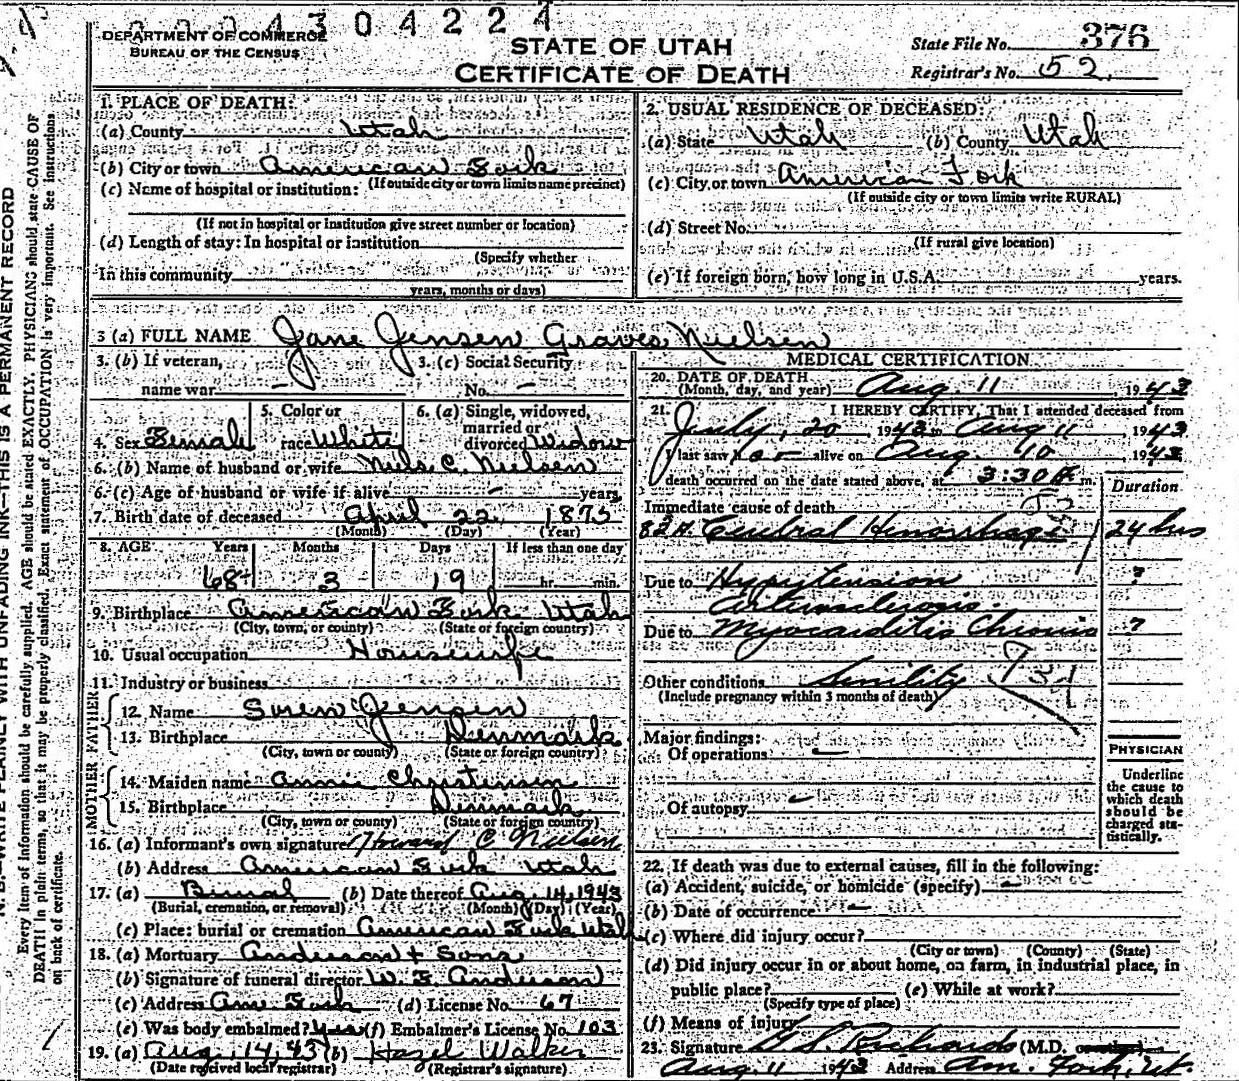 2 2 0 4 3 0 4 2 2 4
DEPARTMENT OF COMMERCE
BUREAU OF THE CENSUS
STATE OF UTAH
CERTIFICATE OF DEATH
State File No. 376
Registrar's No. 52
N. B.—WRITE PLAINLY WITH UNFADING INK—THIS IS A PERMANENT RECORD
Every item of information should be carefully supplied. AGE should be stated EXACTLY. PHYSICIANS should state CAUSE OF
DEATH in plain terms, so that it may be properly classified. Exact statement of OCCUPATION is very important. See instructions
on back of certificate.
1. PLACE OF DEATH:
(a) County Utah
(b) City or town American Fork
(If outside city or town limits name precinct)
(c) Name of hospital or institution:
(If not in hospital or institution give street number or location)
(d) Length of stay: In hospital or institution
(Specify whether
In this community
years, months or days)
2. USUAL RESIDENCE OF DECEASED:
(a) State Utah (b) County Utah
(c) City or town American Fork
(If outside city or town limits write RURAL)
(d) Street No.
(If rural give location)
(e) If foreign born, how long in U.S.A. years.
3 (a) FULL NAME Jane Jensen Graves Nielsen
3. (b) If veteran, name war – 3. (c) Social Security No. –
4. Sex Female 5. Color or race White 6. (a) Single, widowed, married or divorced Widow
6. (b) Name of husband or wife Niels C. Nielsen
6. (c) Age of husband or wife if alive – years
7. Birth date of deceased April 22, 1875
(Month) (Day) (Year)
8. AGE Years Months Days If less than one day
68 3 19 hr. min.
9. Birthplace American Fork Utah
(City, town, or county) (State or foreign country)
10. Usual occupation Housewife
11. Industry or business
FATHER
12. Name Soren Jensen
13. Birthplace Denmark
(City, town or county) (State or foreign country)
MOTHER
14. Maiden name Annie Christensen
15. Birthplace Denmark
(City, town or county) (State or foreign country)
16. (a) Informant's own signature Howard C Nielsen
(b) Address American Fork Utah
17. (a) Burial (b) Date thereof Aug. 14, 1943
(Burial, cremation, or removal) (Month) (Day) (Year)
(c) Place: burial or cremation American Fork Utah
18. (a) Mortuary Anderson & Sons
(b) Signature of funeral director W. E. Anderson
(c) Address Am. Fork (d) License No. 67
(e) Was body embalmed? Yes (f) Embalmer's License No. 103
19. (a) Aug. 14, 43 (b) Hazel Walker
(Date received local registrar) (Registrar's signature)
MEDICAL CERTIFICATION
20. DATE OF DEATH
(Month, day, and year) Aug. 11, 1943
21. I HEREBY CERTIFY, That I attended deceased from
July, 20 1943 to Aug 11, 1943
I last saw her alive on Aug. 10, 1943
death occurred on the date stated above, at 3:30 m. Duration
Immediate cause of death
83 A. Cerebral Hemorrhage 24 hrs
Due to Hypertension ?
Arteriosclerosis
Due to Myocarditis Chronic ?
Other conditions Senility
(Include pregnancy within 3 months of death)
Major findings:
Of operations –
Of autopsy –
PHYSICIAN
Underline
the cause to
which death
should be
charged sta-
tistically.
22. If death was due to external causes, fill in the following:
(a) Accident, suicide, or homicide (specify) –
(b) Date of occurrence –
(c) Where did injury occur?
(City or town) (County) (State)
(d) Did injury occur in or about home, on farm, in industrial place, in
public place? (e) While at work?
(Specify type of place)
(f) Means of injury
23. Signature Richards (M.D.
Aug 11 1943 Address Am. Fork, Ut.